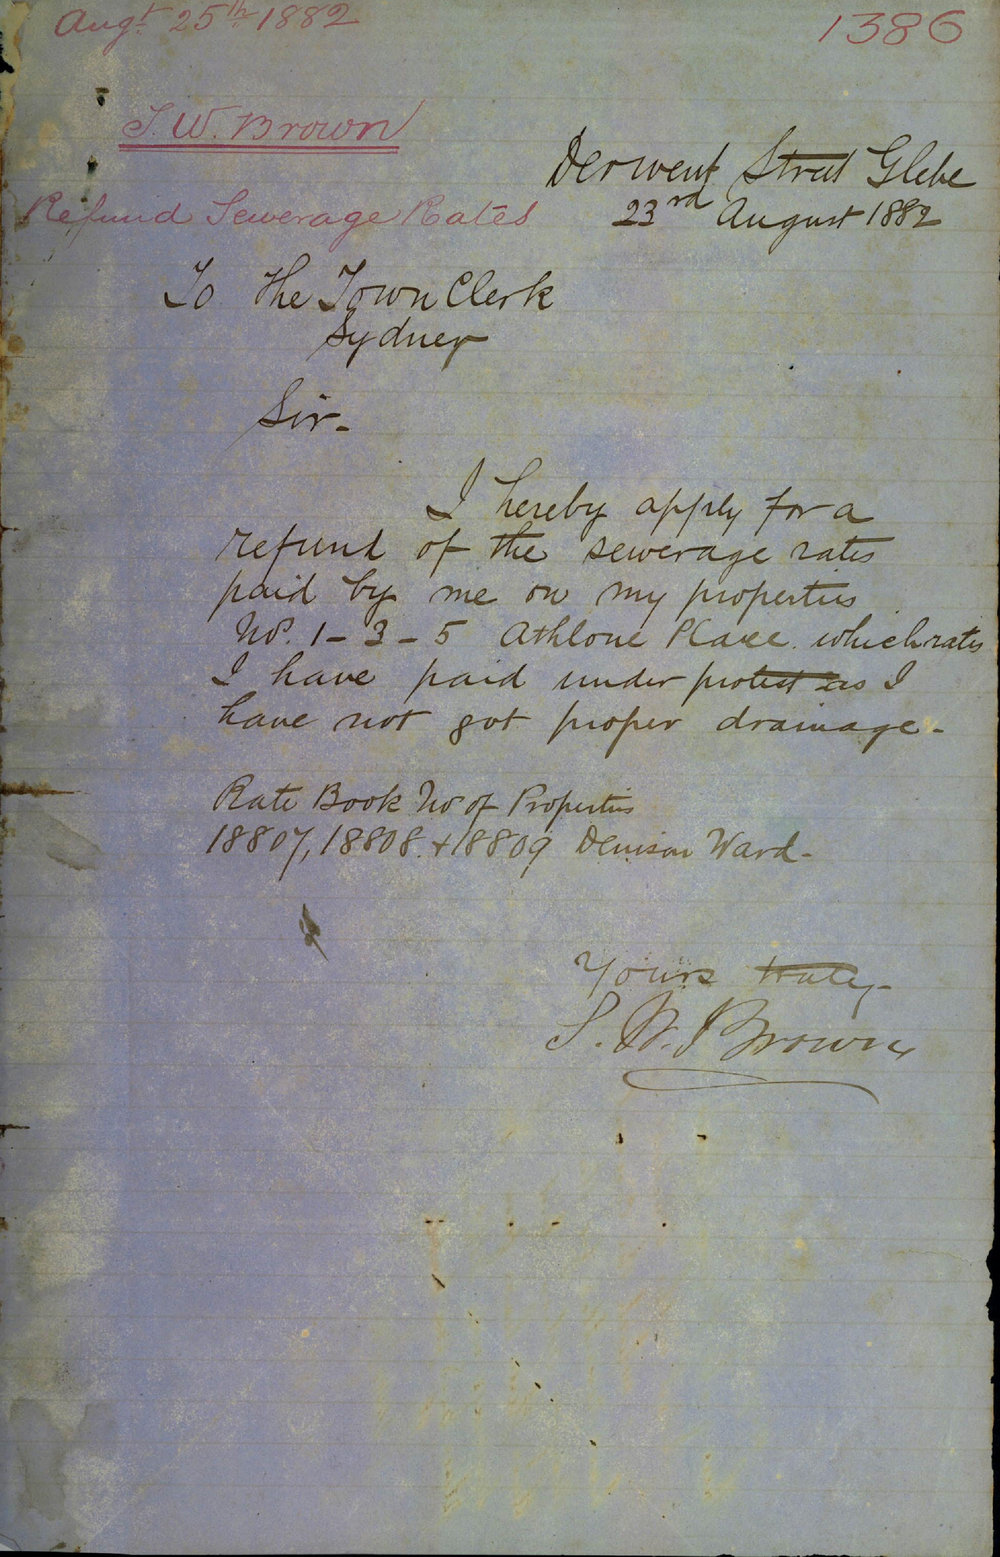 Augt 25th 1882
1386
S. W. Brown
Derwent Street Glebe
Refund Sewerage Rates
23rd August 1882
To the Town Clerk
Sydney
Sir.
I hereby apply for a
refund of the sewerage rates
paid by me on my properties
No. 1 - 3 - 5 Athlone Place. which rates
I have paid under protest as I
have not got proper drainage -
Rate Book No of Properties
18807, 18808. + 18809 Denison Ward -
Yours truly -
S. W. Brown